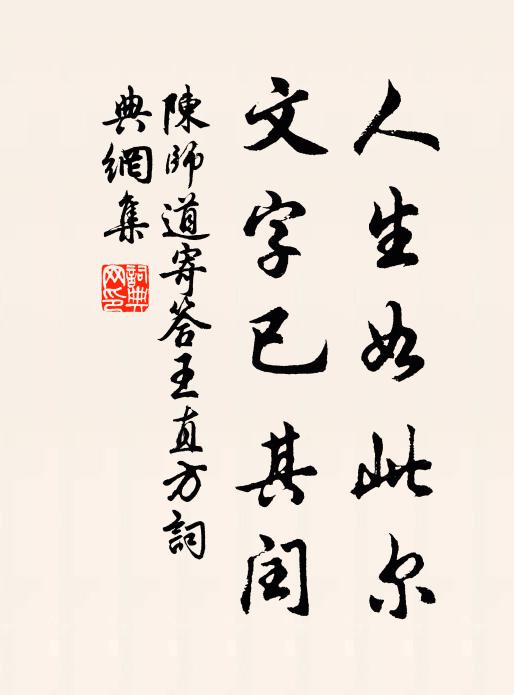 人生如此尔
文字已其闰
陳師道寄答王直方詞
典網集
詞典
网印